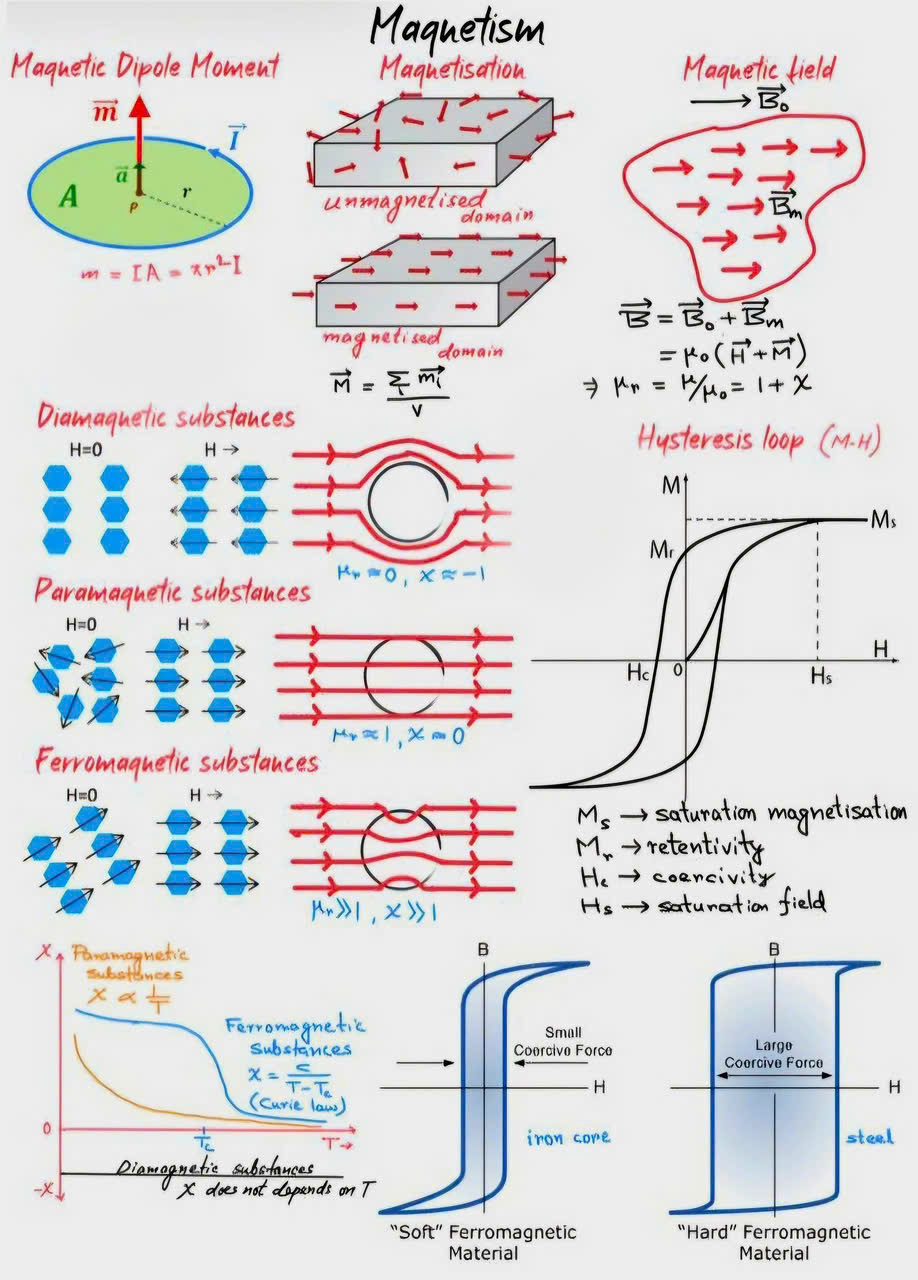 Magnetism
Magnetic Dipole Moment
m⃗
I⃗
a⃗
A
r
P
m = IA = πr²I
Magnetisation
unmagnetised
domain
magnetised
domain
M⃗ = Σᵢ m⃗ᵢ / V
Magnetic field
→ B⃗₀
B⃗ₘ
B⃗ = B⃗₀ + B⃗ₘ
= μ₀(H⃗ + M⃗)
⇒ μᵣ = μ/μ₀ = 1 + χ
Diamagnetic substances
H=0
H →
μᵣ ≈ 0, χ ≈ -1
Paramagnetic substances
H=0
H →
μᵣ ≈ 1, χ ≈ 0
Ferromagnetic substances
H=0
H →
μᵣ >> 1, χ >> 1
Hysteresis loop (M-H)
M
Mₛ
Mᵣ
H
H꜀
0
Hₛ
Mₛ → saturation magnetisation
Mᵣ → retentivity
H꜀ → coercivity
Hₛ → saturation field
χ
Paramagnetic
substances
χ ∝ 1/T
Ferromagnetic
substances
χ = C / (T - T꜀)
(Curie law)
0
T꜀
T→
Diamagnetic substances
χ does not depends on T
-χ
B
Small
Coercive Force
H
iron core
"Soft" Ferromagnetic
Material
B
Large
Coercive Force
H
steel
"Hard" Ferromagnetic
Material